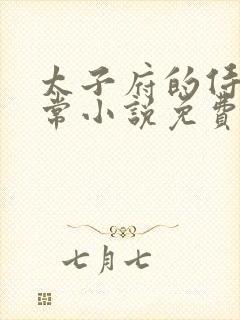 太子府的侍
常小說免費
七月七